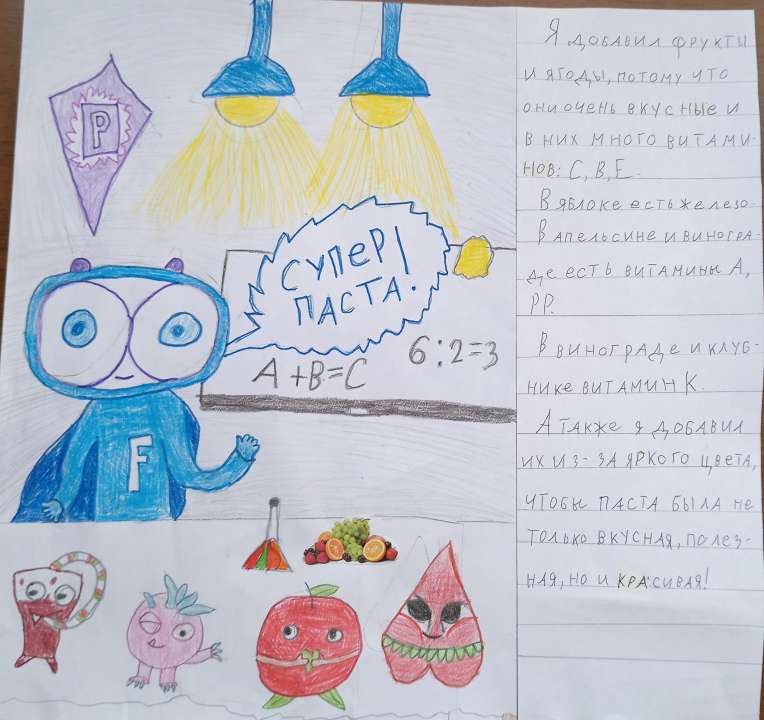 P
СУПЕР!
ПАСТА.
A+B=C
6:2=3
F
Я ДОБАВИЛ ФРУКТЫ
И ЯГОДЫ, ПОТОМУ ЧТО
ОНИ ОЧЕНЬ ВКУСНЫЕ И
В НИХ МНОГО ВИТАМИ-
НОВ: С, В, Е.
В ЯБЛОКЕ ЕСТЬ ЖЕЛЕЗО.
В АПЕЛЬСИНЕ И ВИНОГРА-
ДЕ ЕСТЬ ВИТАМИНЫ А,
РР.
В ВИНОГРАДЕ И КЛУБ-
НИКЕ ВИТАМИН К.
А ТАКЖЕ Я ДОБАВИЛ
ИХ ИЗ-ЗА ЯРКОГО ЦВЕТА,
ЧТОБЫ ПАСТА БЫЛА НЕ
ТОЛЬКО ВКУСНАЯ, ПОЛЕЗ-
НАЯ, НО И КРАСИВАЯ!